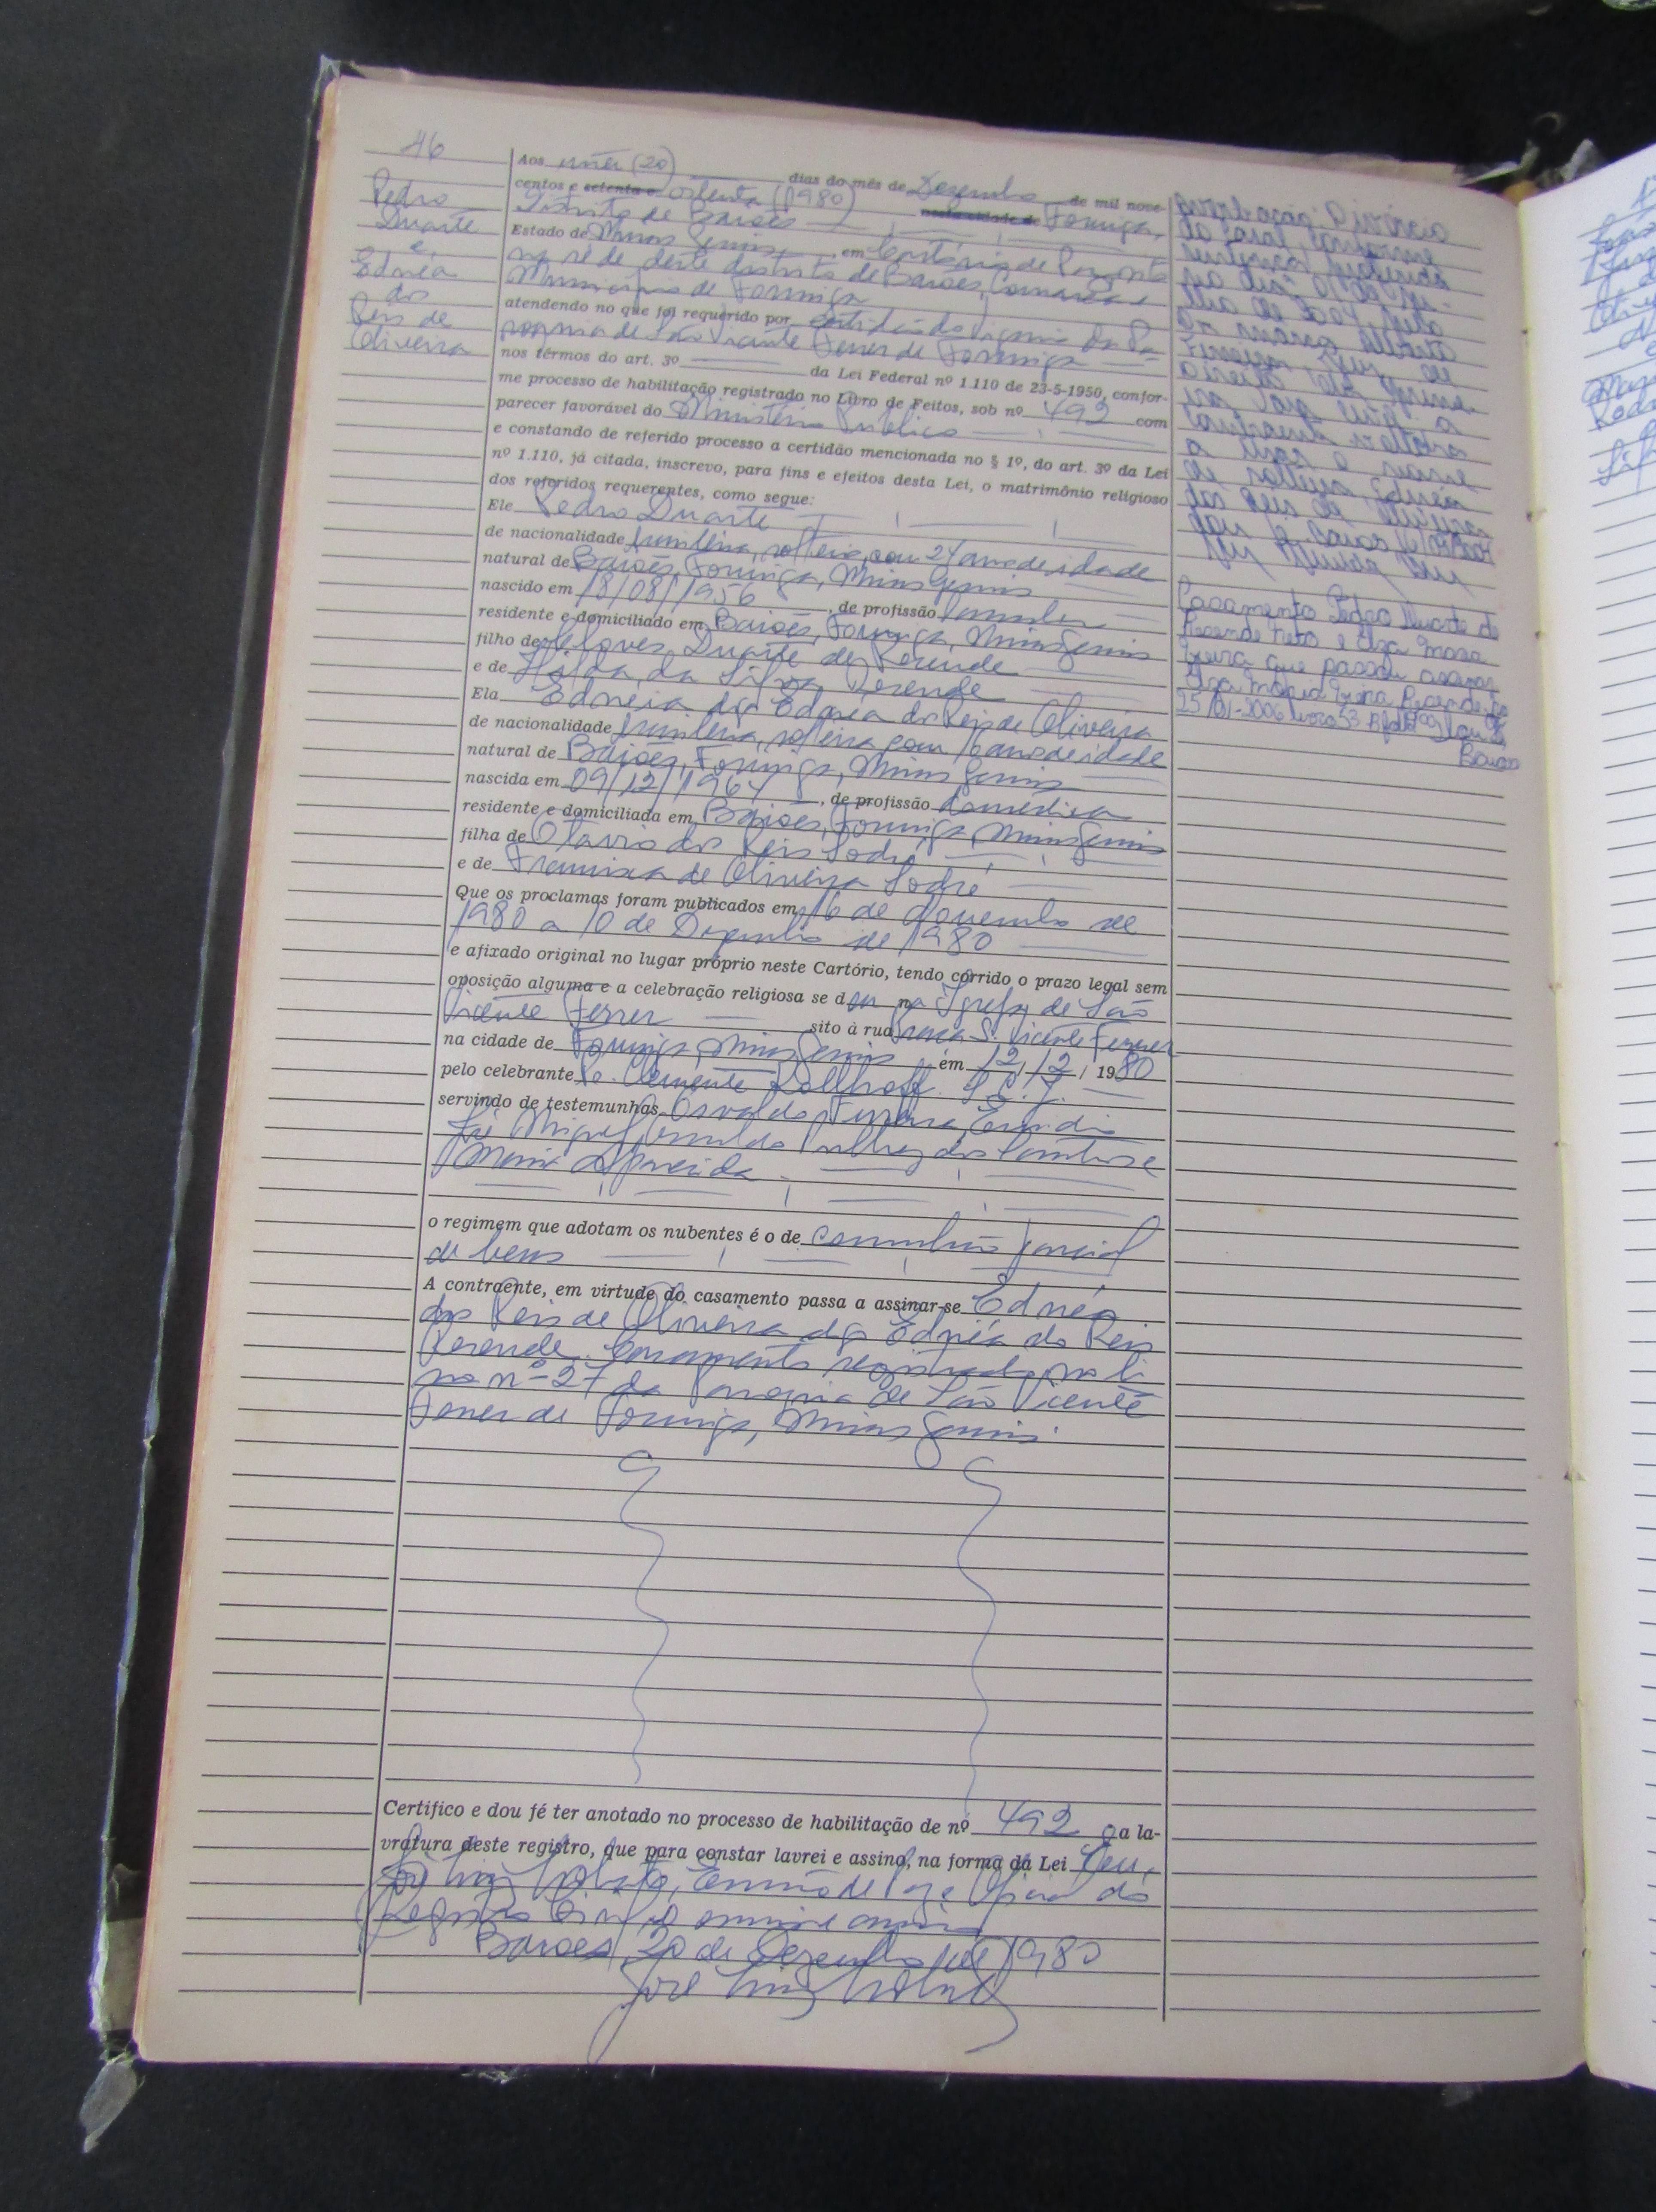 46
Pedro
Duarte
e
Ednéa
dos
Reis de
Oliveira
Aos vinte (20) dias do mês de Dezembro de mil nove-
centos e setenta e oitenta (1980) nesta cidade de Formiga,
Distrito de Baiões
Estado de Minas Gerais, em Cartório de Paz, nesta
na séde deste distrito de Baiões, Comarca e
Município de Formiga
atendendo no que foi requerido por certidão do Vigario da Pa-
roquia de São Vicente Ferrer de Formiga
nos têrmos do art. 3º da Lei Federal nº 1.110 de 23-5-1950, confor-
me processo de habilitação registrado no Livro de Feitos, sob nº 492 com
parecer favorável do Ministério Público
e constando de referido processo a certidão mencionada no § 1º, do art. 3º da Lei
nº 1.110, já citada, inscrevo, para fins e efeitos desta Lei, o matrimônio religioso
dos referidos requerentes, como segue:
Ele Pedro Duarte
de nacionalidade brasileira, solteiro, com 24 anos de idade
natural de Baiões, Formiga, Minas Gerais
nascido em 18/08/1956, de profissão lavrador
residente e domiciliado em Baiões, Formiga, Minas Gerais
filho de Cloves Duarte de Resende
e de Hilda da Silva Resende
Ela Edneia digo Ednéa dos Reis de Oliveira
de nacionalidade brasileira, solteira com 16 anos de idade
natural de Baiões, Formiga, Minas Gerais
nascida em 09/12/1964, de profissão doméstica
residente e domiciliada em Baiões, Formiga, Minas Gerais
filha de Otavio dos Reis Sodré
e de Francisca de Oliveira Sodré
Que os proclamas foram publicados em 16 de Novembro de
1980 a 10 de Dezembro de 1980
e afixado original no lugar próprio neste Cartório, tendo corrido o prazo legal sem
oposição alguma e a celebração religiosa se deu na Igreja de São
Vicente Ferrer sito à rua Praca S. Vicente Ferrer
na cidade de Formiga, Minas Gerais em 12/12/1980
pelo celebrante Pe. Clemente
servindo de testemunhas Osvaldo Ferreira,
José Miguel, Geraldo dos Santos e
Maria Aparecida
o regimem que adotam os nubentes é o de comunhão parcial
de bens
A contraente, em virtude do casamento passa a assinar-se Ednéa
dos Reis de Oliveira digo Ednéa dos Reis
Resende. Casamento registrado no li
vro nº 27 da Paroquia de São Vicente
Ferrer de Formiga, Minas Gerais.
Certifico e dou fé ter anotado no processo de habilitação de nº 492 a la-
vratura deste registro, que para constar lavrei e assino, na forma da Lei Eu,
José Luiz Escrivão de Paz e Oficial do
Registro Civil o escrevi e assino
Baiões, 20 de Dezembro de 1980
José Luiz
Averbação: Divórcio
do casal, conforme
sentença proferida
no dia
de 2004, pelo
Dr. Marco Alberto
Ferreira, Juiz de
Direito
contraente voltou
a usar o nome
de solteira Ednéa
dos Reis de Oliveira
dou fé. Baiões
Casamento Pedro Duarte de
Resende Neto e Elza Maria
que passou assinar
Elza Maria Resende
25/01-2006 livro 53
Baiões